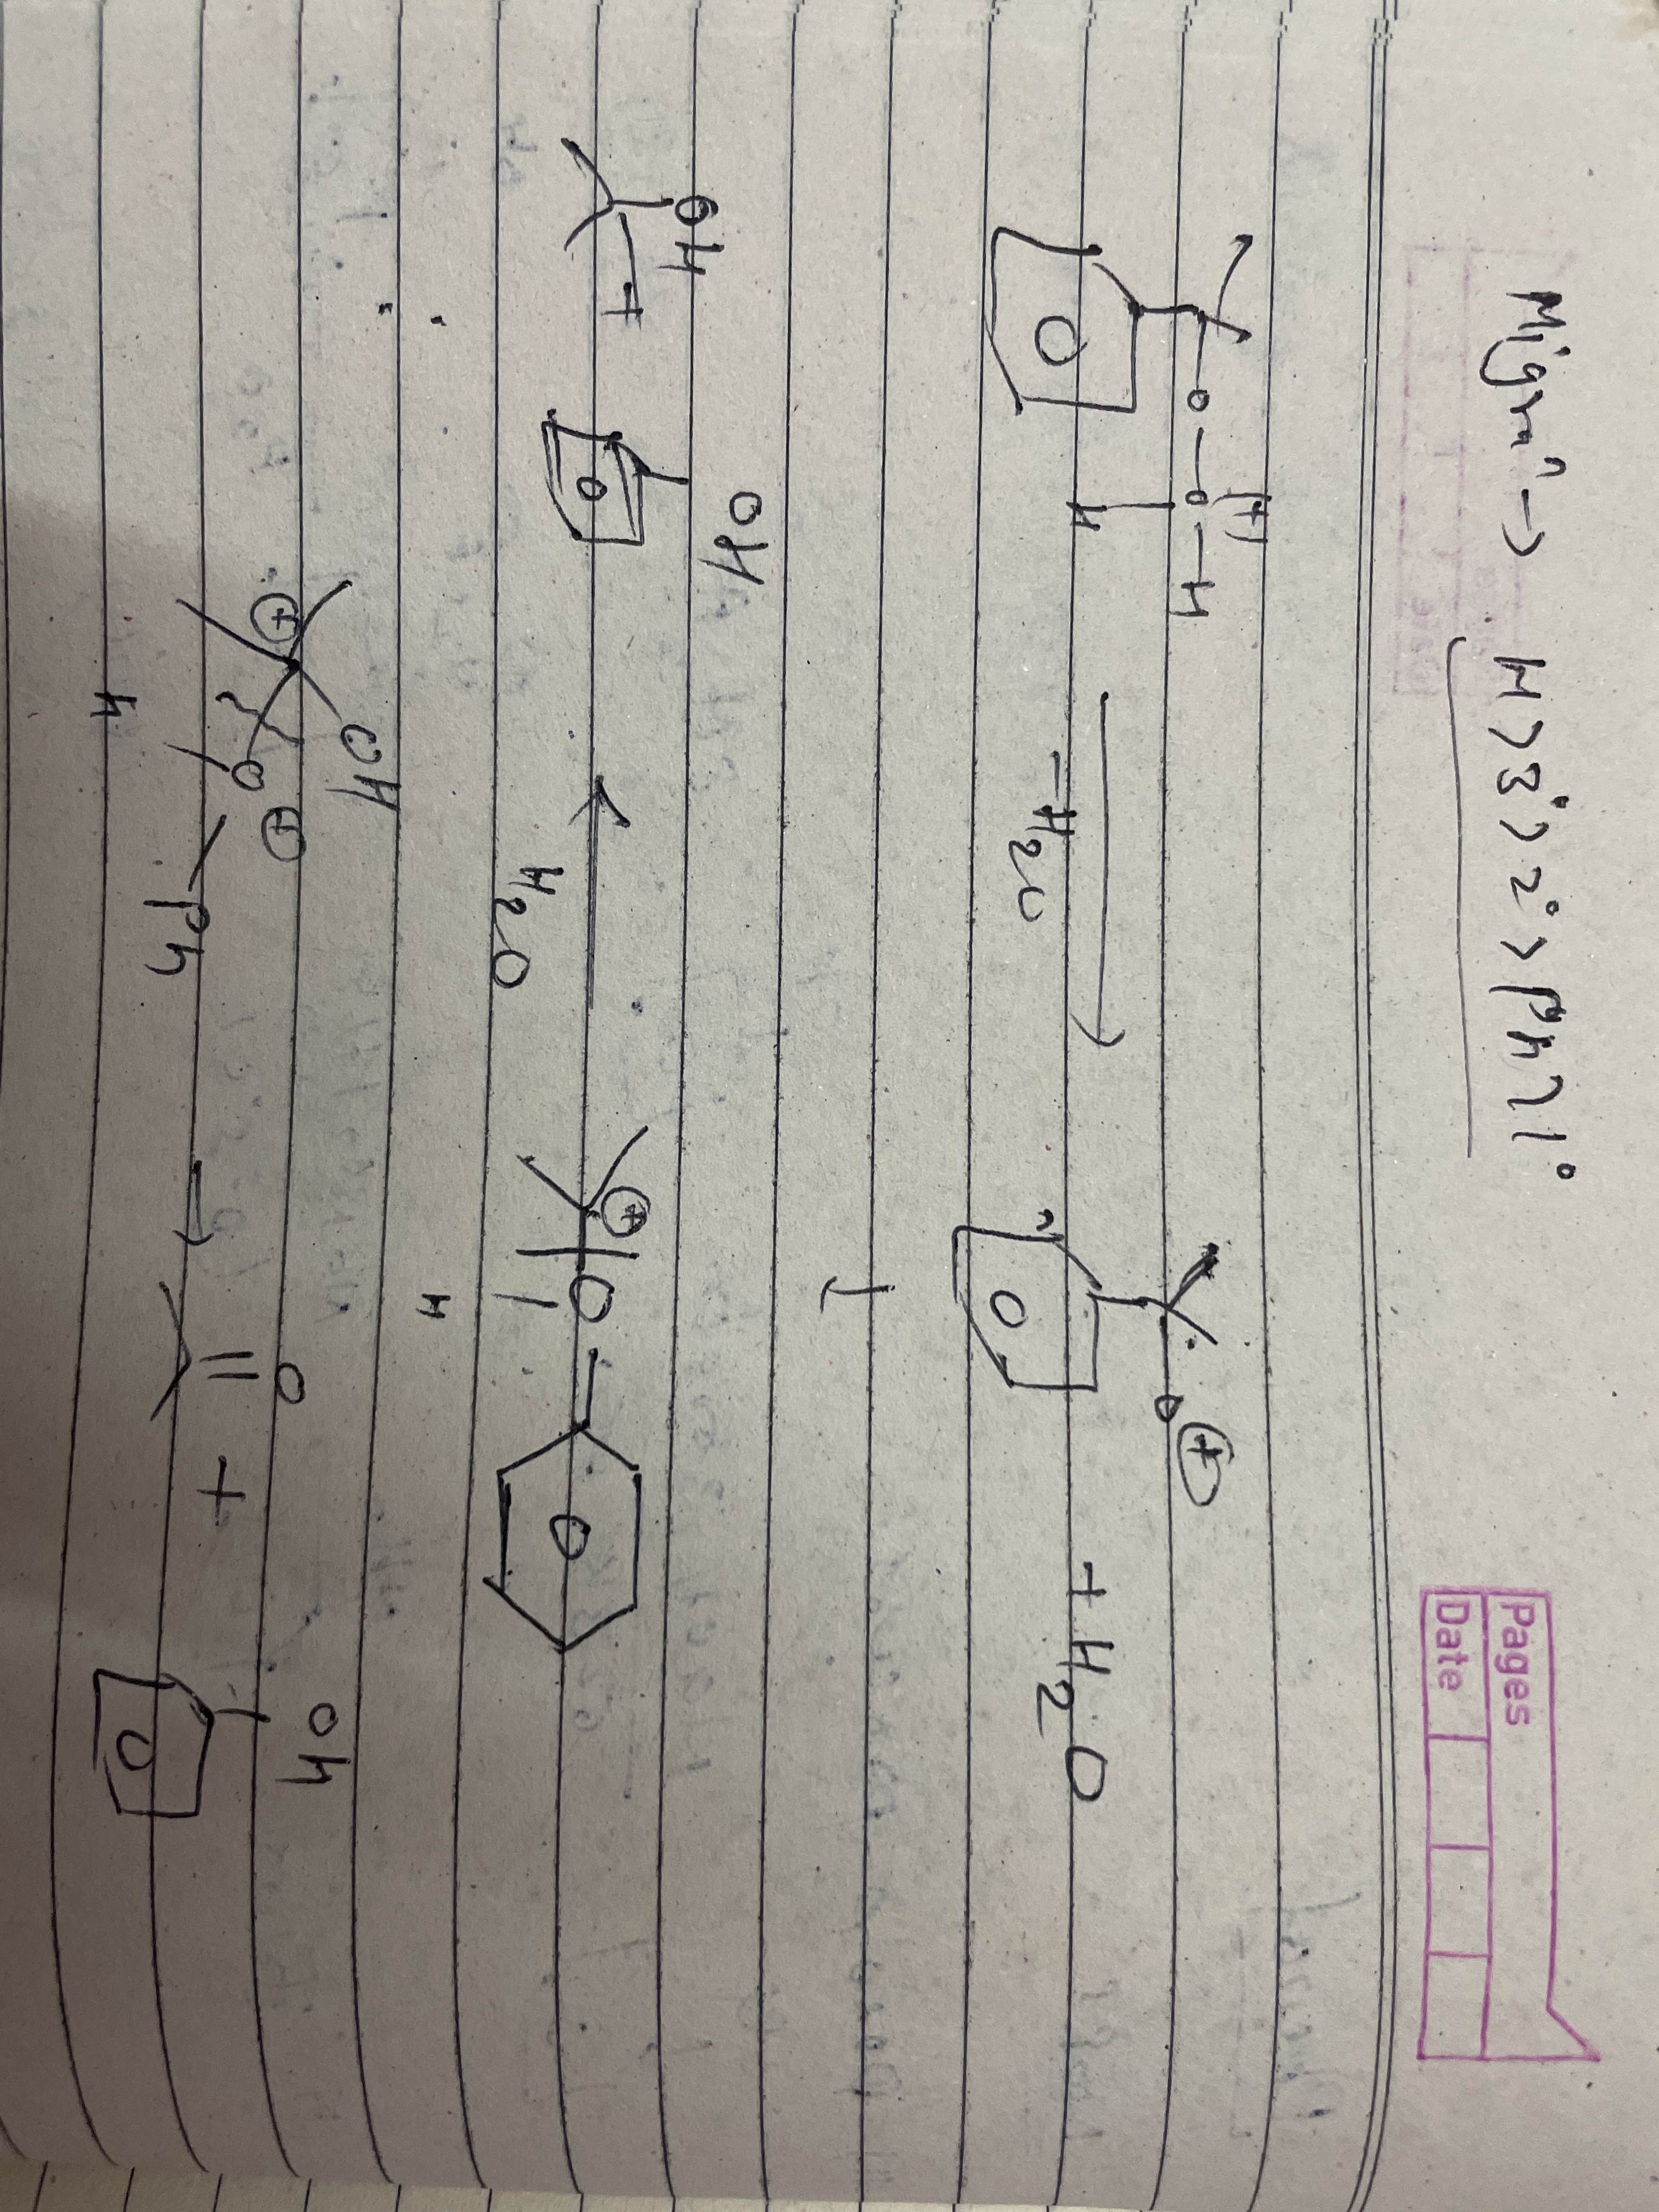 Pages
Date
Migraⁿ → H > 3° > 2° > Ph > 1°
O - O - H
(+)
H
-H2O
O
⊕
+ H2O
OH
+
OH
H2O
⊕
O
H
OH
⊕
O
⊕
Ph
H
O
+
OH